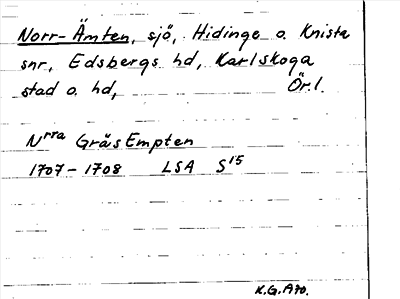 Norr-Ämten, sjö, Hidinge o. Knista
snr, Edsbergs hd, Karlskoga
stad o. hd, Ör.l.
Nrra Gräs Empten
1707-1708 LSA S15
K.G.A 70.